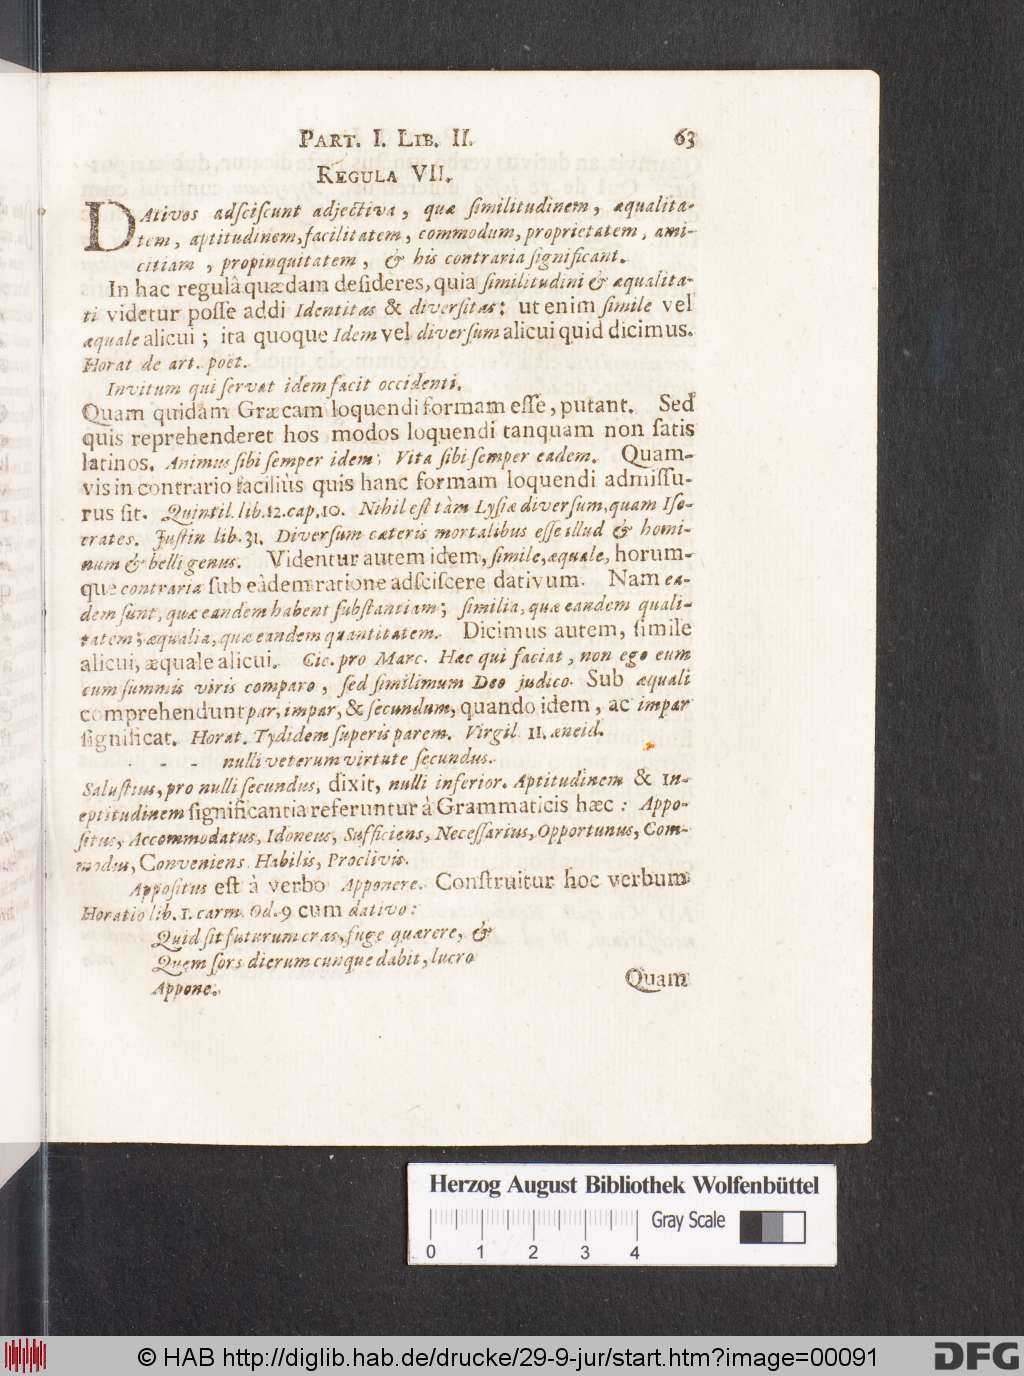 PART. I. LIB. II. 63
REGULA VII.
DAtivos adſciſcunt adjectiva, quæ ſimilitudinem, æqualita-
tem, aptitudinem, facilitatem, commodum, proprietatem, ami-
citiam, propinquitatem, & his contraria ſignificant.
In hac regulâ quædam deſideres, quia ſimilitudini & æqualita-
ti videtur poſſe addi Identitas & diverſitas: ut enim ſimile vel
æquale alicui; ita quoque Idem vel diverſum alicui quid dicimus.
Horat de art. poët.
Invitum qui ſervat idem facit occidenti.
Quam quidam Græcam loquendi formam eſſe, putant. Sed
quis reprehenderet hos modos loquendi tanquam non ſatis
latinos. Animus ſibi ſemper idem. Vita ſibi ſemper eadem. Quam-
vis in contrario faciliùs quis hanc formam loquendi admiſſu-
rus ſit. Quintil. lib. 12. cap. 10. Nihil eſt tàm Lyſiæ diverſum, quam Iſo-
crates. Juſtin lib. 31. Diverſum cæteris mortalibus eſſe illud & homi-
num & belli genus. Videntur autem idem, ſimile, æquale, horum-
que contraria ſub eâdem ratione adſciſcere dativum. Nam ea-
dem ſunt, quæ eandem habent ſubſtantiam; ſimilia, quæ eandem quali-
tatem; æqualia, quæ eandem quantitatem. Dicimus autem, ſimile
alicui, æquale alicui. Cic. pro Marc. Hæc qui faciat, non ego eum
cum ſummis viris comparo, ſed ſimilimum Deo judico. Sub æquali
comprehendunt par, impar, & ſecundum, quando idem, ac impar
ſignificat. Horat. Tydidem ſuperis parem. Virgil. II. æneid.
- - - nulli veterum virtute ſecundus.
Saluſtius, pro nulli ſecundus, dixit, nulli inferior. Aptitudinem & in-
eptitudinem ſignificantia referuntur à Grammaticis hæc: Appo-
ſitus, Accommodatus, Idoneus, Sufficiens, Neceſſarius, Opportunus, Com-
modus, Conveniens Habilis, Proclivis.
Appoſitus eſt à verbo Apponere. Conſtruitur hoc verbum
Horatio lib. 1. carm. Od. 9 cum dativo:
Quid ſit futurum cras, fuge quærere, &
Quem ſors dierum cunque dabit, lucro
Appone.
Quam
Herzog August Bibliothek Wolfenbüttel
Gray Scale
0 1 2 3 4
© HAB http://diglib.hab.de/drucke/29-9-jur/start.htm?image=00091
DFG